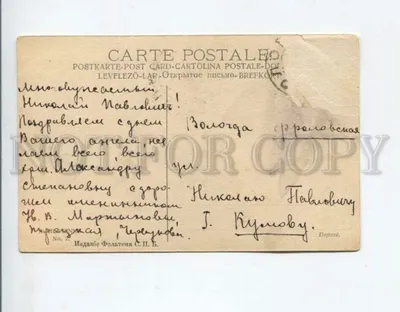 CARTE POSTALE
POSTKARTE-POST CARD-CARTOLINA POSTALE-DO
LEVELEZŐ-LAP-Открытое письмо-BREFKO
Многоуважаемый
Николай Павловичъ!
Поздравляем с днем
Вашего ангела, же
лаем всего, всего
хор. Александру
Степановну с доро
гим именинником
Н. В. Мартыновы
Вологда Фроловская
ул.
Николаю Павловичу
Г. Кулову.
NOT FOR COPY
No.
Изданіе Фельтена С.П.Б.
Déposé.